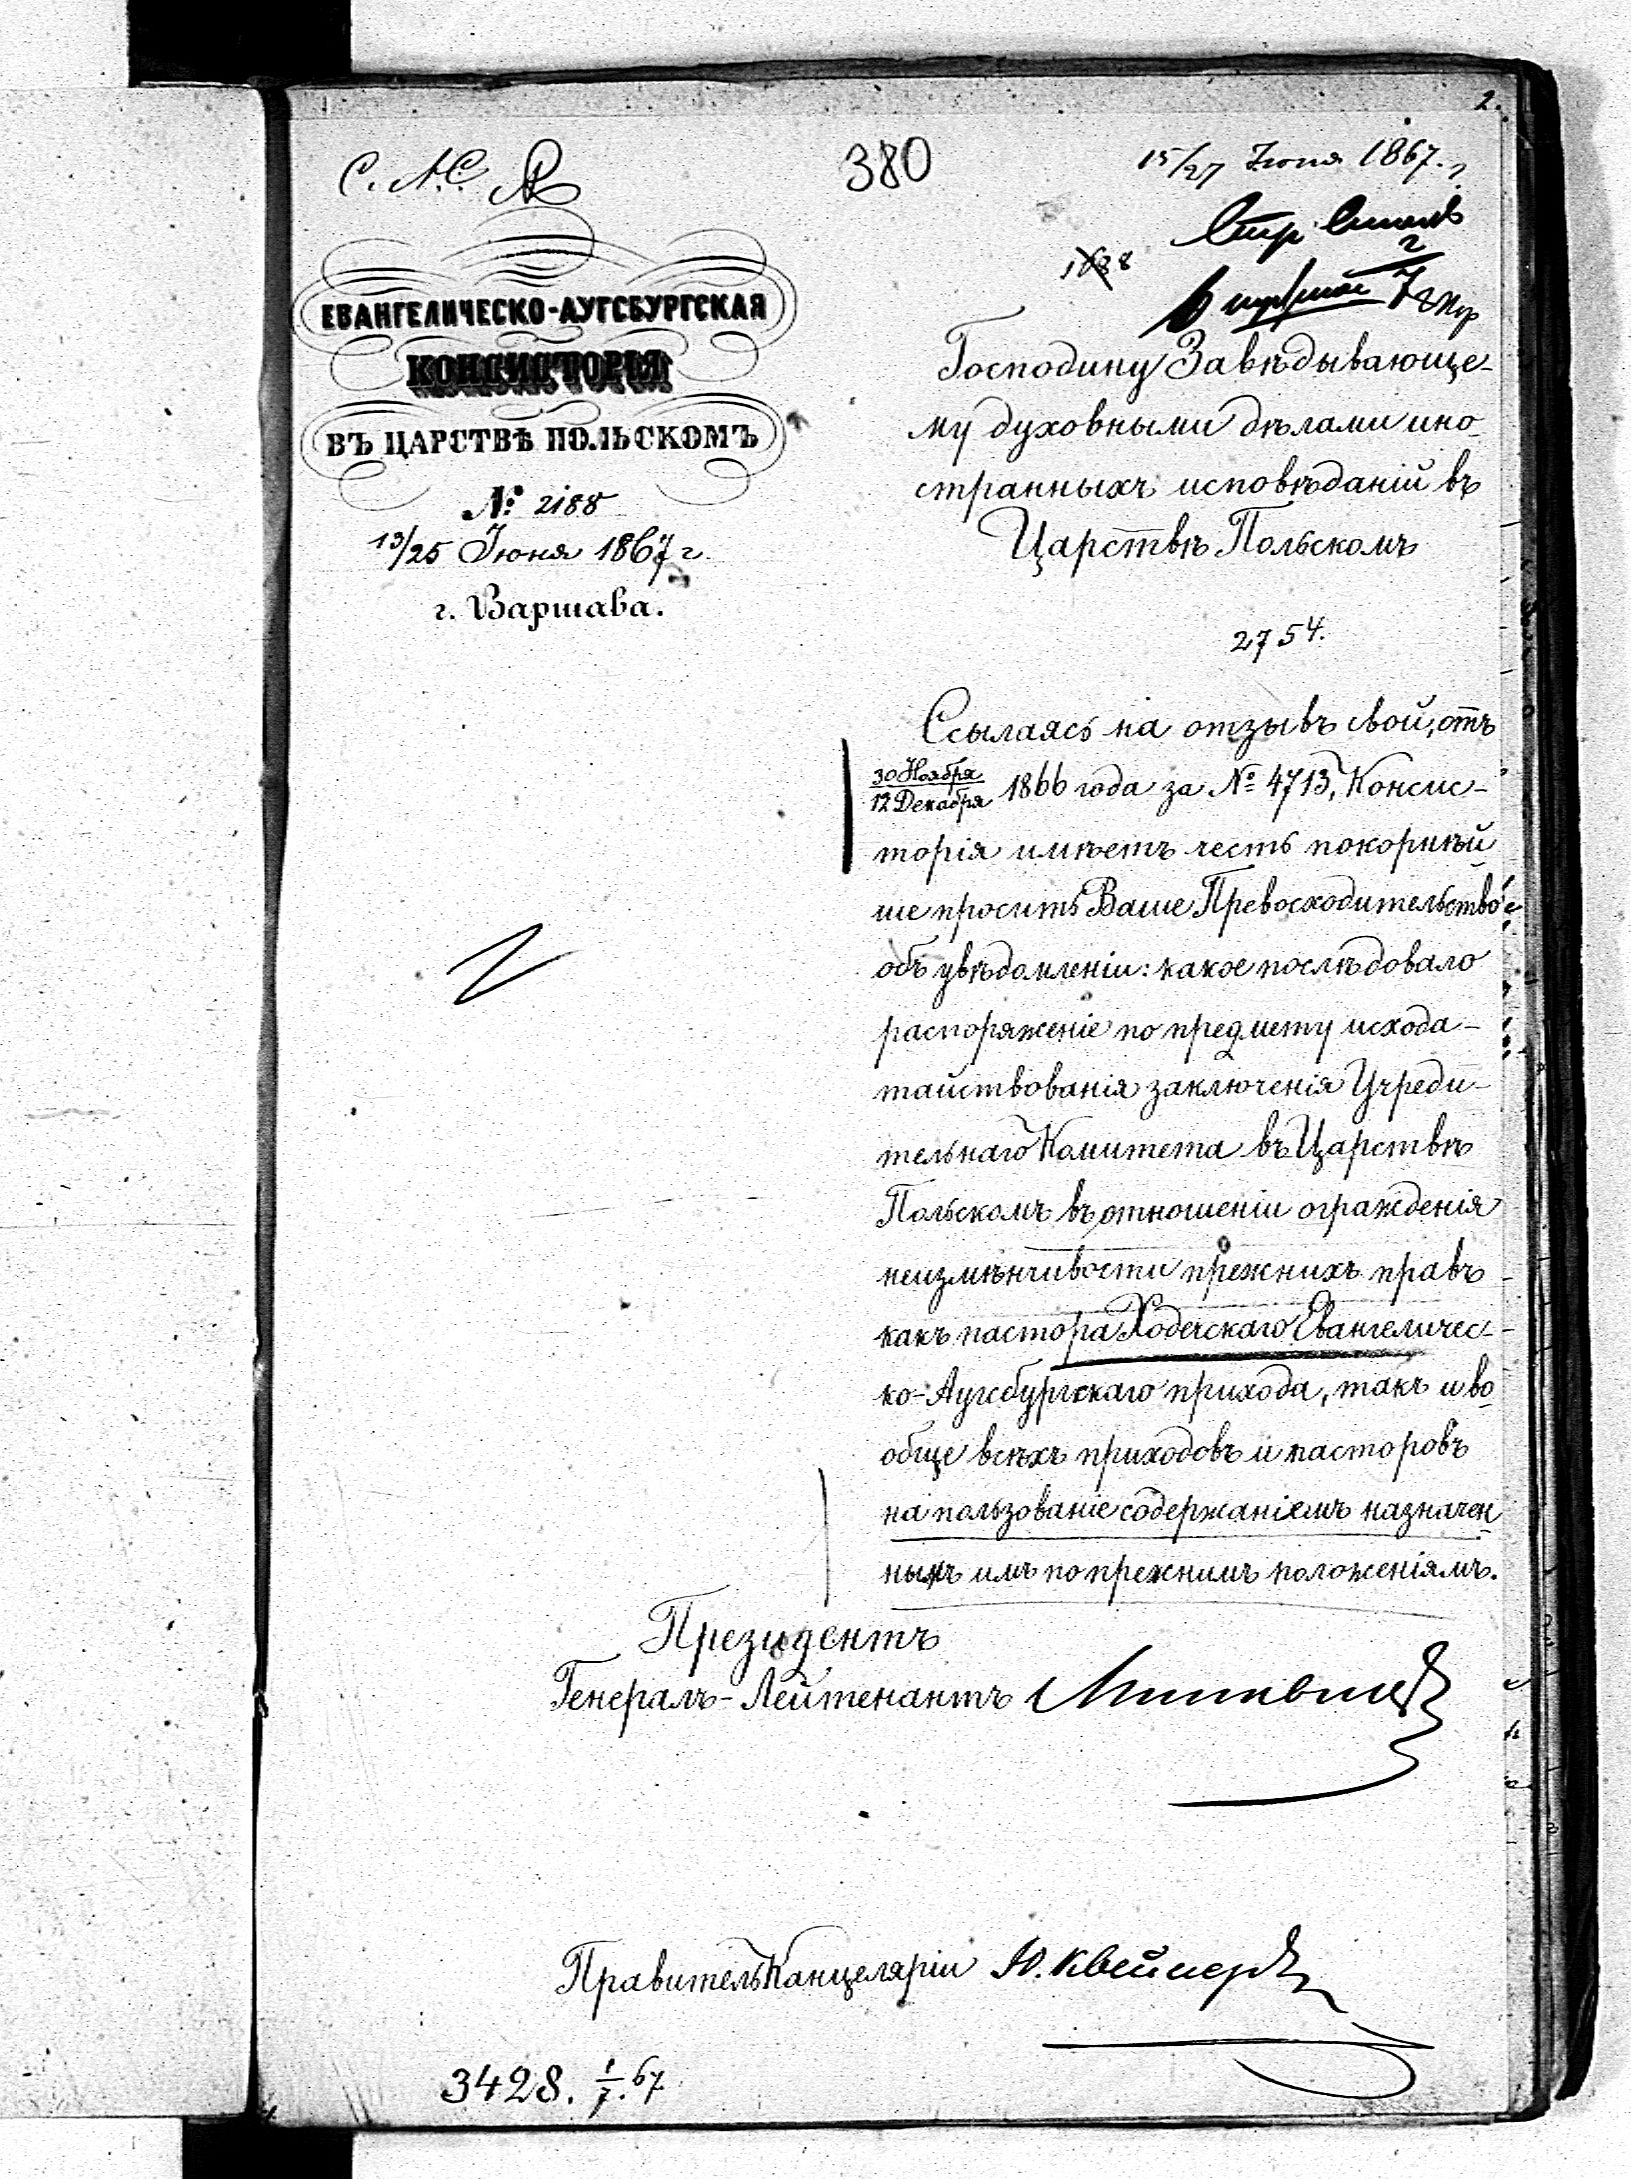 2.
С. А. С.
380
15/27 Июня 1867.
1638
ЕВАНГЕЛИЧЕСКО-АУГСБУРГСКАЯ
КОНСИСТОРІЯ
ВЪ ЦАРСТВѢ ПОЛЬСКОМЪ
№ 2188
13/25 Іюня 1867 г.
г. Варшава.
Господину Завѣдывающе-
му духовными дѣлами ино-
странныхъ исповѣданій въ
Царствѣ Польскомъ
2754.
Ссылаясь на отзывъ свой, отъ
30 Ноября
12 Декабря 1866 года за № 4713, Консис-
торія имѣетъ честь покорнѣй
ше просить Ваше Превосходительство
объ увѣдомленіи: какое послѣдовало
распоряженіе по предмету исхода-
тайствованія заключенія Учреди-
тельнаго Комитета въ Царствѣ
Польскомъ въ отношеніи огражденія
неизмѣнчивости прежнихъ правъ
какъ пастора Ходечскаго Евангеличес-
ко-Аугсбургскаго прихода, такъ и во-
обще всѣхъ приходовъ и пасторовъ
на пользованіе содержаніемъ назначен-
нымъ имъ по прежнимъ положеніямъ.
Президентъ
Генералъ-Лейтенантъ
Правитель Канцеляріи
3428. 1/7. 67